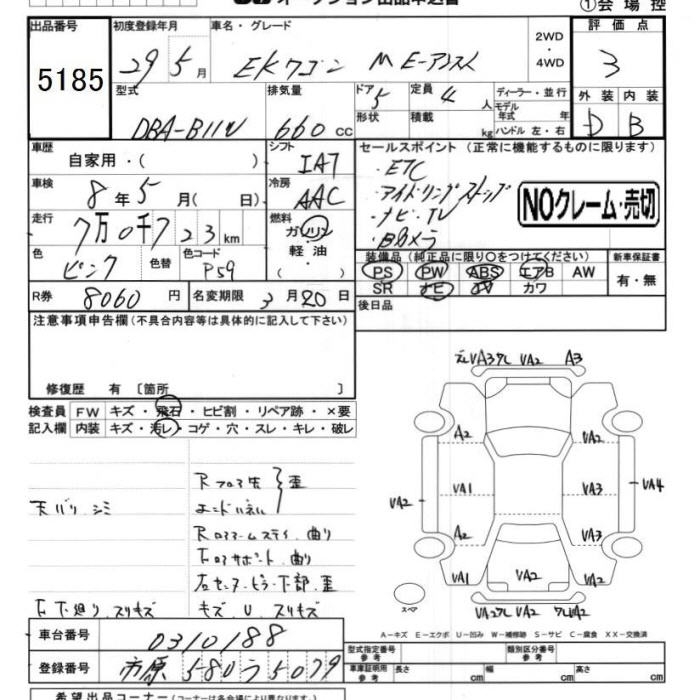 オークション出品申込書
①会場控
出品番号 初度登録年月 車名・グレード 2WD 評価点
5185 29年5月 EKワゴン M E-アシスト ・4WD 3
型式 排気量 ドア 定員 ディーラー・並行 外装 内装
DBA-B11W 660cc 5 4人 モデル年式 年 D B
形状 積載 kg ハンドル 左・右
車歴 シフト セールスポイント (正常に機能するものに限ります)
自家用・( ) IAT ・ETC
車検 冷房 ・アイドリングストップ
8年5月( 日) AAC ・ナビ・TV NOクレーム・売切
走行 燃料 ・Bカメラ
7万0千723km ガソリン
軽・油
色 色替 色コード 装備品 (純正品に限り○をつけてください) 新車保証書
ピンク P59 PS PW ABS エアB AW 有・無
SR ナビ TV カワ
R券 8060円 名変期限 3月20日 後日品
注意事項申告欄(不具合内容等は具体的に記入して下さい)
修復歴 有 〔箇所 〕
検査員 FW キズ・飛石・ヒビ割・リペア跡・×要
記入欄 内装 キズ・汚レ・コゲ・穴・スレ・キレ・破レ
Rフロア先 歪
天バリ シミ エンドパネル
Rロアアームステイ 曲り
下回りスリキズ キズ、U、スリキズ
VA2 A3
A2 VA2
VA2 VA1 VA3 VA4
A2 VA3
VA1 VA2 VA2
スペア
A-キズ E-エクボ U-凹み W-補修跡 S-サビ C-腐食 XX-交換済
車台番号 0310188
登録番号 市原 580 う 5079
型式指定番号 参考 類別区分番号 参考
車庫証明用 参考 長さ cm 幅 cm 高さ cm
希望出品コーナー(コーナーは各会場により異なります)